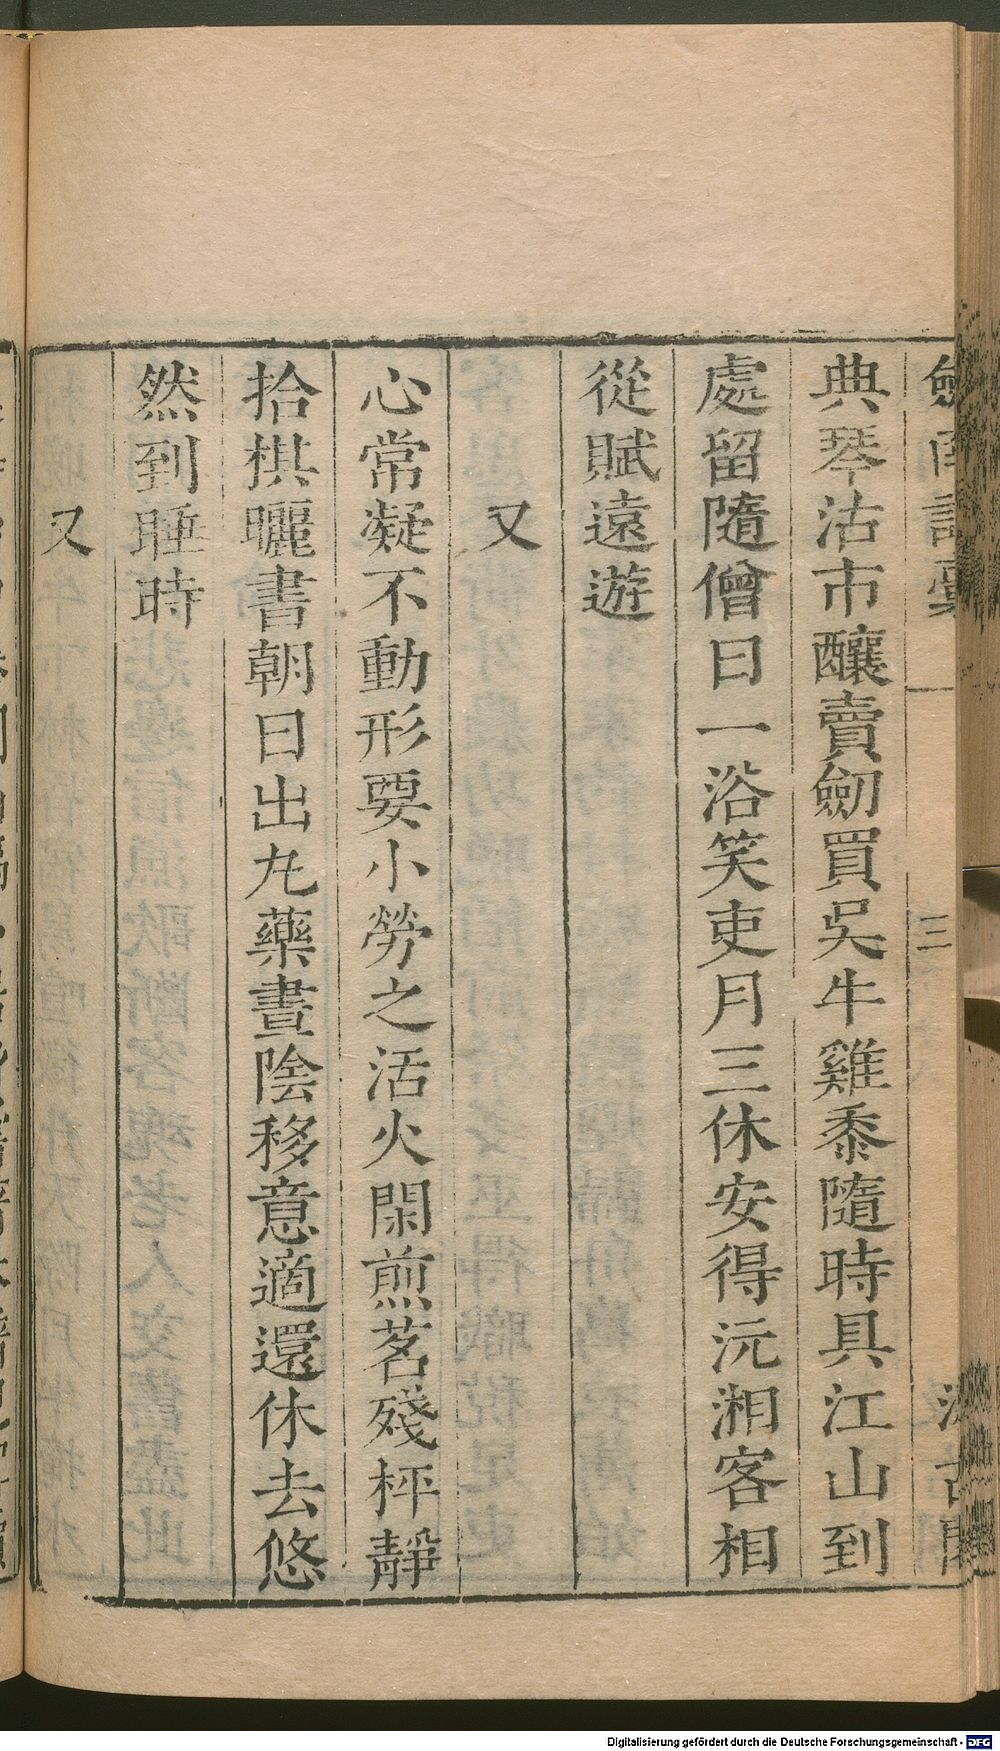 劍南詩
三
典琴沽市釀賣劒買吳牛雞黍隨時具江山到
處留隨僧日一浴笑吏月三休安得沅湘客相
從賦遠遊
又
心常凝不動形要小勞之活火閑煎茗殘枰靜
拾棋曬書朝日出丸藥晝陰移意適還休去悠
然到睡時
又
Digitalisierung gefördert durch die Deutsche Forschungsgemeinschaft - DFG